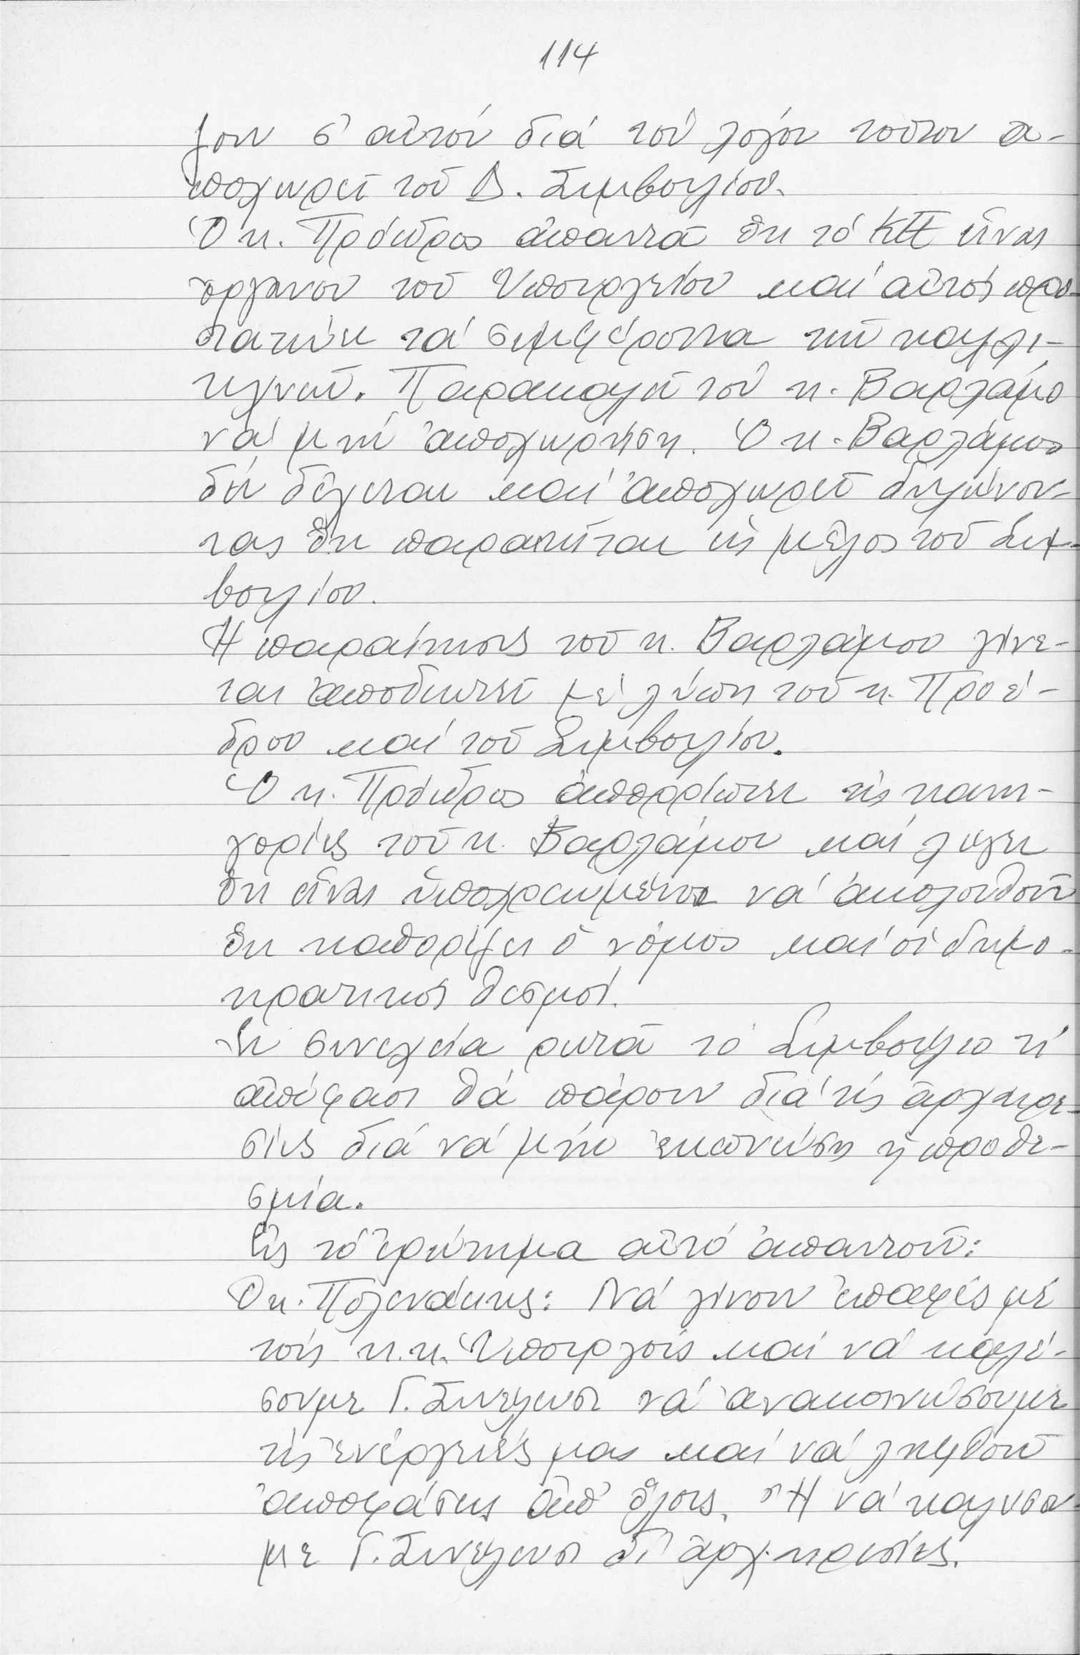 114
ζουν σ' αὐτόν διά τόν λόγον τοῦτον ἀ-
ποχωρεῖ τοῦ Δ. Συμβουλίου.
Ὁ κ. Πρόεδρος ἀπαντᾶ ὅτι τό ΚΠΕ εἶναι
ὄργανον τοῦ Ὑπουργείου καί αὐτοί προ
στατεύει τά συμφέροντα τῶν καλλι-
τεχνῶν. Παρακαλεῖ τόν κ. Βαρλάμο
νά μήν ἀποχωρήση. Ὁ κ. Βαρλάμος
δέν δέχεται καί ἀποχωρεῖ δηλώνον-
τας ὅτι παραιτεῖται ὡς μέλος τοῦ Συμ-
βουλίου.
Ἡ παραίτησις τοῦ κ. Βαρλάμου γίνε-
ται ἀποδεκτή μέ λύπη τοῦ κ. Προέ-
δρου καί τοῦ Συμβουλίου.
Ὁ κ. Πρόεδρος ἀπορρίπτει τίς κατη-
γορίες τοῦ κ. Βαρλάμου καί λέγει
ὅτι εἶναι ὑποχρεωμένοι νά ἀκολουθοῦν
ὅτι καθορίζει ὁ νόμος καί οἱ δημο-
κρατικοί θεσμοί.
Ἐν συνεχεία ρωτᾶ τό Συμβούλιο τί
ἀπόφαση θά πάρουν διά τίς ἀρχαιρε-
σίες διά νά μήν ἐκπνεύση ἡ προθε-
σμία.
Εἰς τό ἐρώτημα αὐτό ἀπαντοῦν:
Ὁ κ. Πολενάκης: Νά γίνουν ἐπαφές μέ
τούς κ.κ. Ὑπουργούς καί νά καλέ-
σουμε Γ. Συνέλευση νά ἀνακοινώσουμε
τίς ἐνέργειές μας καί νά ληφθοῦν
ἀποφάσεις ἀπ' ὅλους. Ἤ νά καλέσου
με Γ. Συνέλευση δι' ἀρχαιρεσίες.